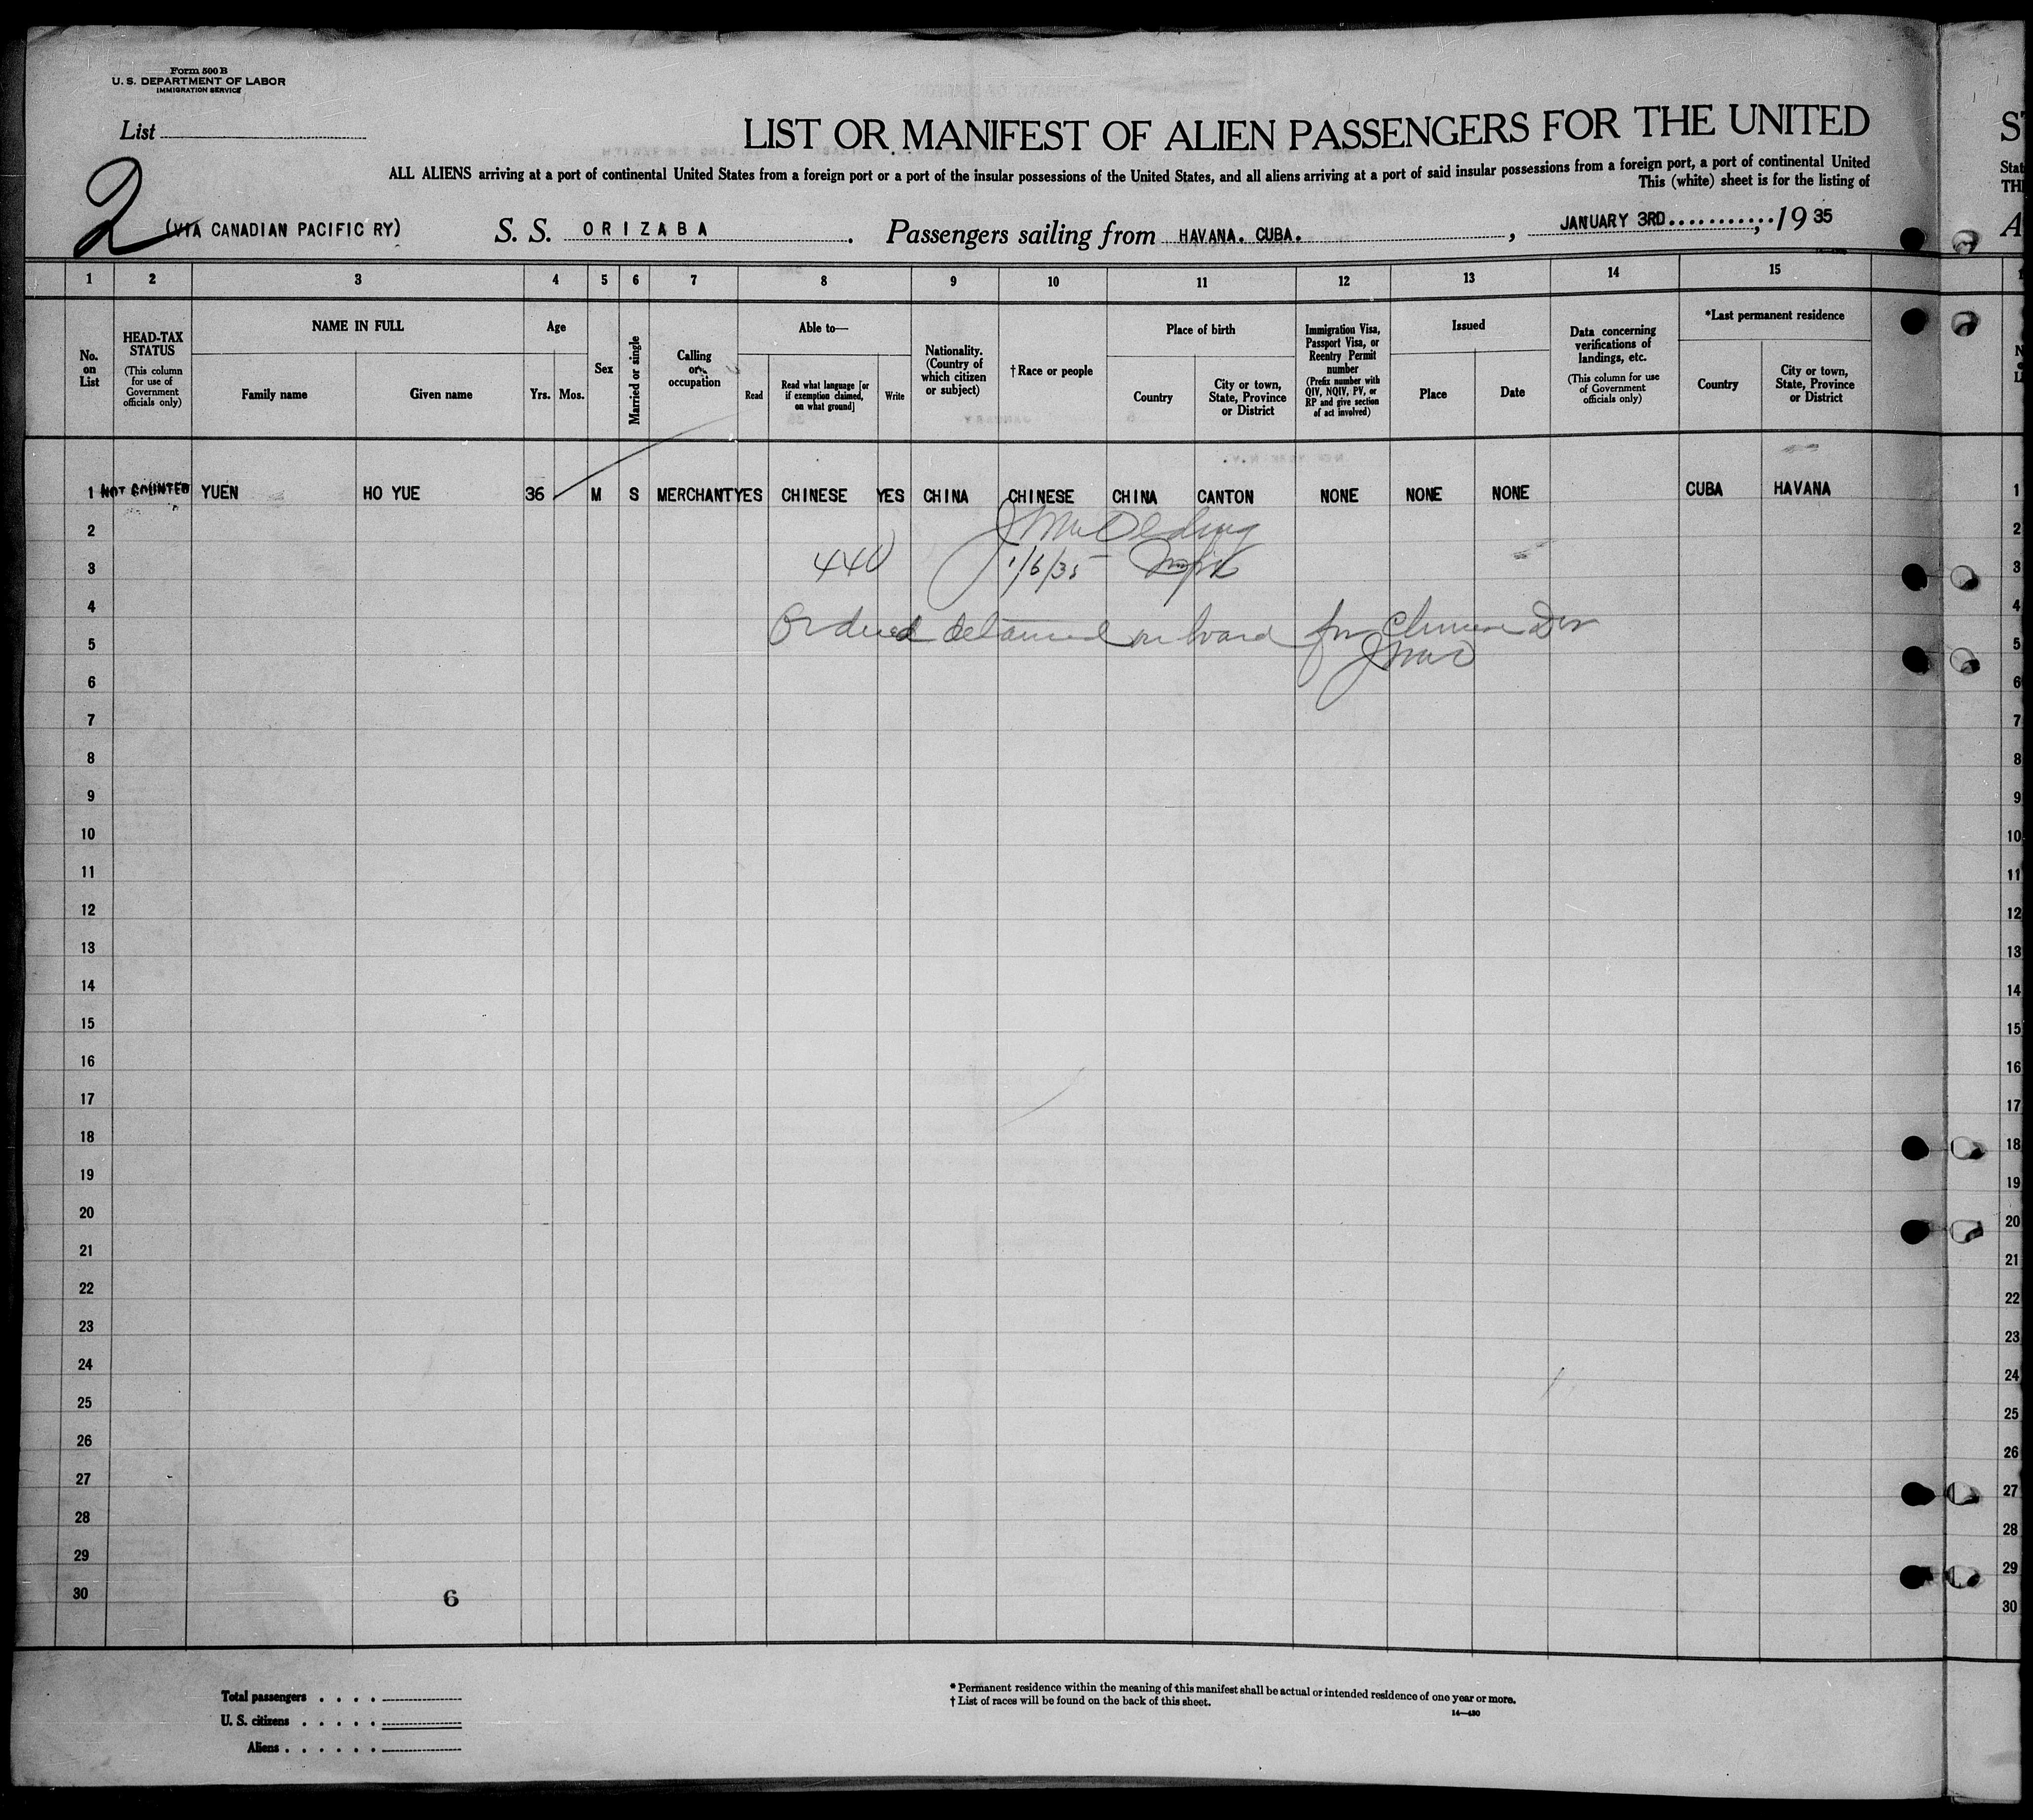 Form 500 B
U. S. DEPARTMENT OF LABOR
IMMIGRATION SERVICE
List
LIST OR MANIFEST OF ALIEN PASSENGERS FOR THE UNITED
ALL ALIENS arriving at a port of continental United States from a foreign port or a port of the insular possessions of the United States, and all aliens arriving at a port of said insular possessions from a foreign port, a port of continental United
This (white) sheet is for the listing of
2
(VIA CANADIAN PACIFIC RY)
S. S. ORIZABA. Passengers sailing from HAVANA. CUBA., JANUARY 3RD..........., 1935
1 2 3 4 5 6 7 8 9 10 11 12 13 14 15
No. on List
HEAD-TAX STATUS
(This column for use of Government officials only)
NAME IN FULL
Family name
Given name
Age
Yrs. Mos.
Sex
Married or single
Calling or occupation
Able to—
Read
Read what language [or if exemption claimed, on what ground]
Write
Nationality. (Country of which citizen or subject)
† Race or people
Place of birth
Country
City or town, State, Province or District
Immigration Visa, Passport Visa, or Reentry Permit number
(Prefix number with QIV, NQIV, PV, or RP and give section of act involved)
Issued
Place
Date
Data concerning verifications of landings, etc.
(This column for use of Government officials only)
*Last permanent residence
Country
City or town, State, Province or District
1 NOT COUNTED YUEN HO YUE 36 M S MERCHANT YES CHINESE YES CHINA CHINESE CHINA CANTON NONE NONE NONE CUBA HAVANA 1
2 2
3 440 1/6/35 3
4 4
5 Ordered detained on board for Chinese Div 5
6 6
7 7
8 8
9 9
10 10
11 11
12 12
13 13
14 14
15 15
16 16
17 17
18 18
19 19
20 20
21 21
22 22
23 23
24 24
25 25
26 26
27 27
28 28
29 29
30 30
6
Total passengers . . . .
U. S. citizens . . . . .
Aliens . . . . . .
* Permanent residence within the meaning of this manifest shall be actual or intended residence of one year or more.
† List of races will be found on the back of this sheet.
14—430